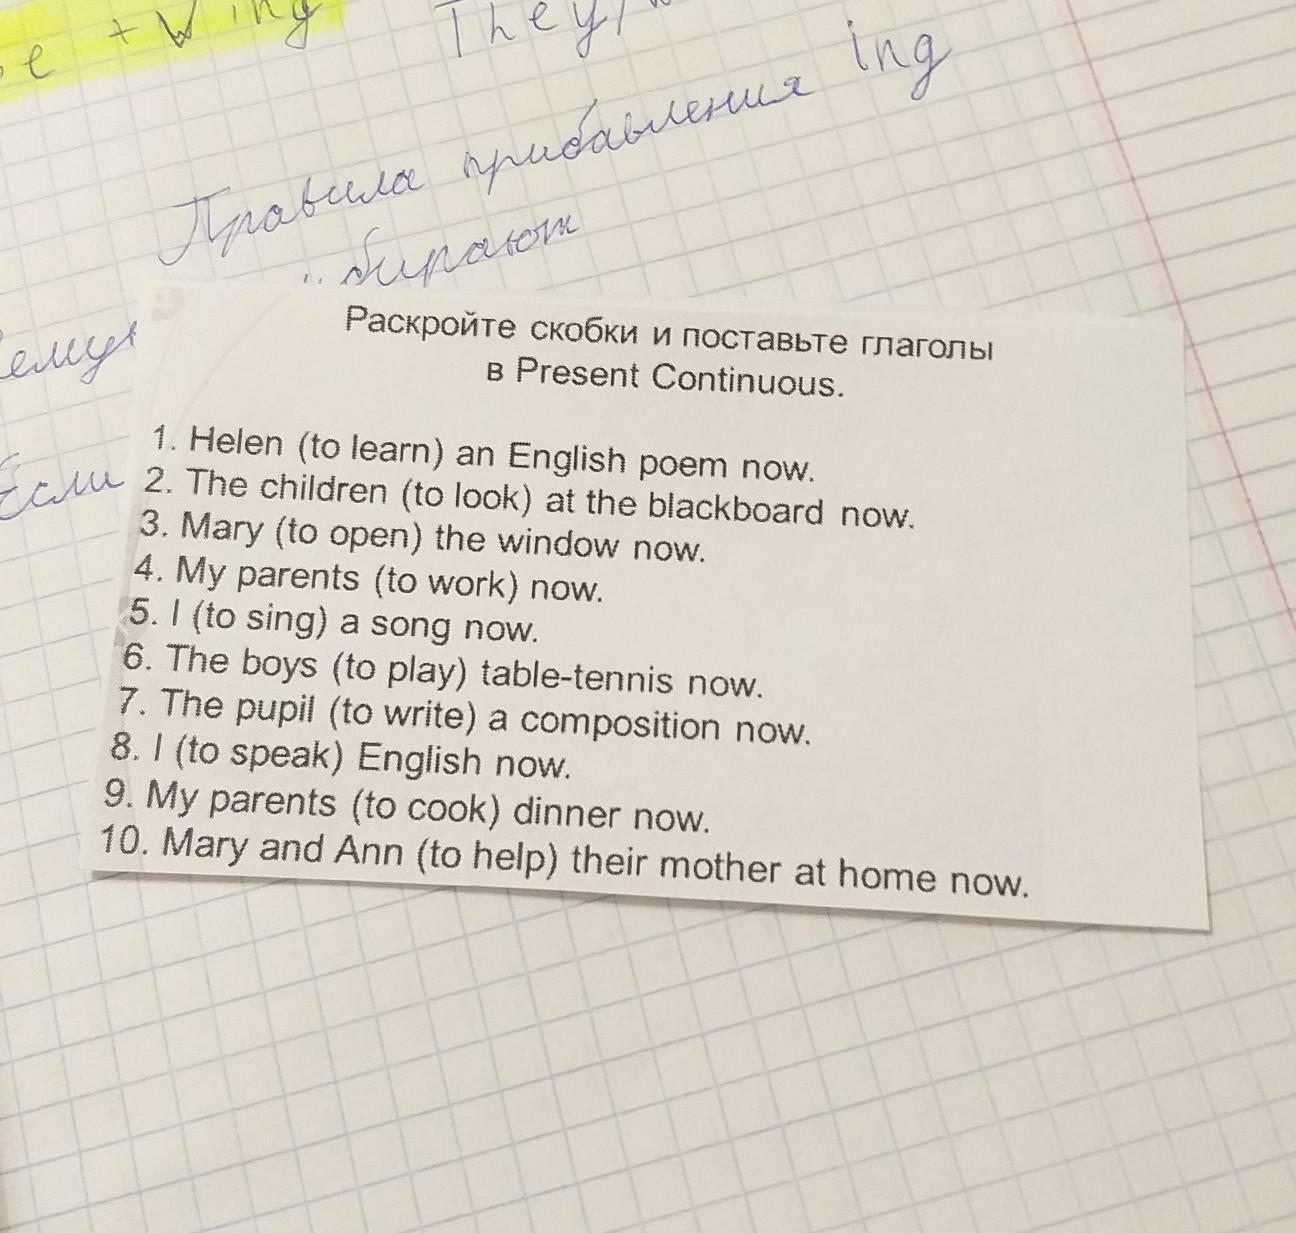 e + V ing They/
Правила прибавления ing
бирают
ему
Если
Раскройте скобки и поставьте глаголы
в Present Continuous.
1. Helen (to learn) an English poem now.
2. The children (to look) at the blackboard now.
3. Mary (to open) the window now.
4. My parents (to work) now.
5. I (to sing) a song now.
6. The boys (to play) table-tennis now.
7. The pupil (to write) a composition now.
8. I (to speak) English now.
9. My parents (to cook) dinner now.
10. Mary and Ann (to help) their mother at home now.